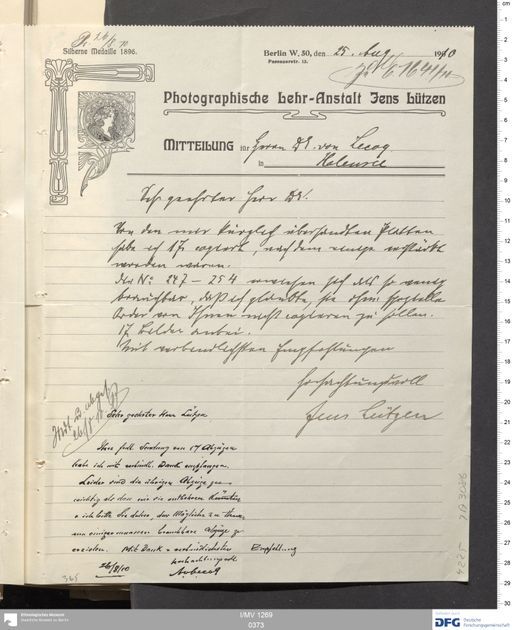 Silberne Medaille 1896.
Berlin W, 50, den 25. Aug. 1910
Passauerstr. 13.
Photographische Lehr-Anstalt Jens Lützen
MITTEILUNG für Herrn Dr. von Lecoq
in Halensee
Sehr geehrter Herr Dr.
Von den mir kürzlich übersandten Platten
habe ich 17 copiert, nachdem einige verstärkt
worden waren.
Die No 247 - 254 erwiesen sich als so wenig
brauchbar, daß ich glaubte, sie ohne spezielle
Order von Ihnen nicht copieren zu sollen.
17 Bilder anbei.
Mit verbindlichsten Empfehlungen
Hochachtungsvoll
Jens Lützen
26/8 10
Sehr geehrter Herr Lützen
Ihre Sendung von 17 Abzügen
habe ich mit verbindl. Dank empfangen.
Leider sind die übrigen Abzüge zu
wichtig als dass wir sie entbehren könnten
u. ich bitte Sie daher, das Möglichste zu thun,
um einigermassen brauchbare Abzüge zu
erzielen. Mit Dank u. verbindlichster Empfehlung
hochachtungsvoll
26/8/10
365
4255
TA 3086
Ethnologisches Museum
Staatliche Museen zu Berlin
I/MV 1269
0373
DFG Deutsche
Forschungsgemeinschaft